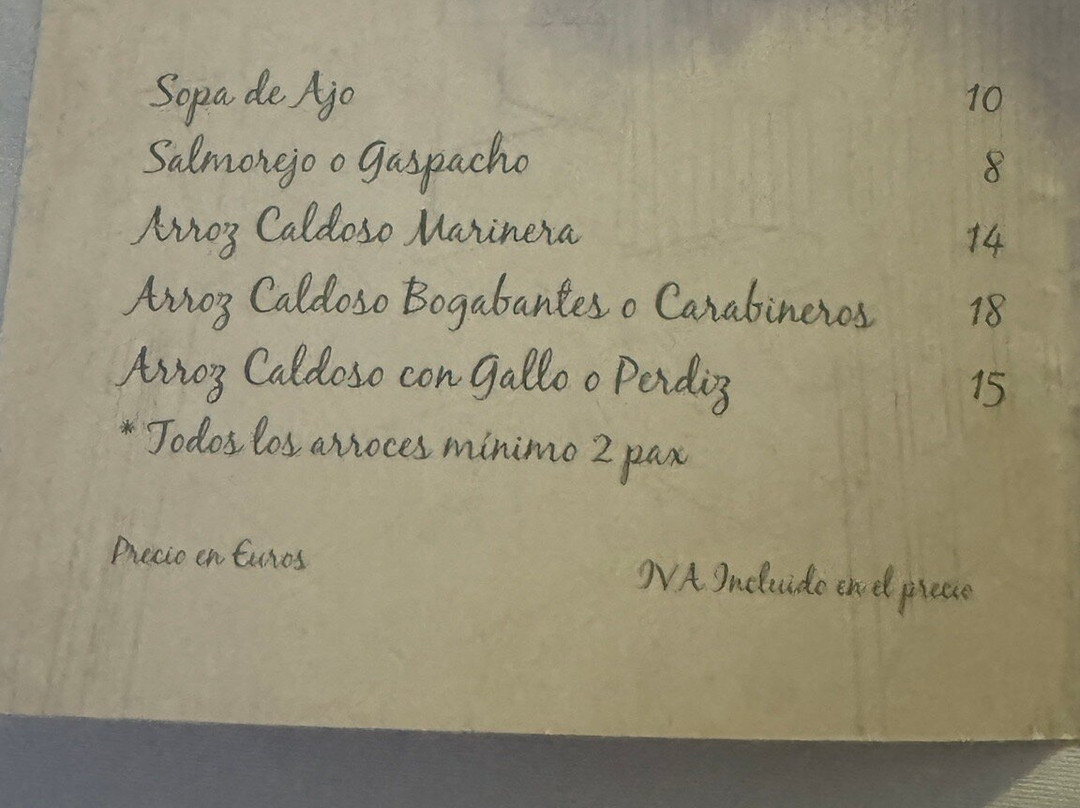 Sopa de Ajo 10
Salmorejo o Gaspacho 8
Arroz Caldoso Marinera 14
Arroz Caldoso Bogabantes o Carabineros 18
Arroz Caldoso con Gallo o Perdiz 15
* Todos los arroces mínimo 2 pax
Precio en Euros
IVA Incluido en el precio